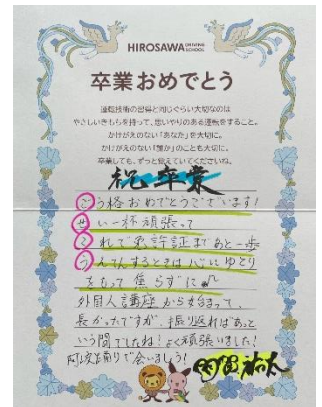 HIROSAWA DRIVING SCHOOL
卒業おめでとう
運転技術の習得と同じぐらい大切なのは
やさしいきもちを持って、思いやりのある運転をすること。
かけがえのない「あなた」を大切に。
かけがえのない「誰か」のことも大切に。
卒業しても、ずっと覚えていてくださいね。
祝卒業
ごう格おめでとうございます!
せい一杯頑張って
これで免許証まであと一歩
うんてんするときは心にゆとり
をもって焦らずに
外国人講座から始まって、
長かったですが、振り返ればあっと
いう間でしたね!よく頑張りました!
阿波踊りで会いましょう!
祐太